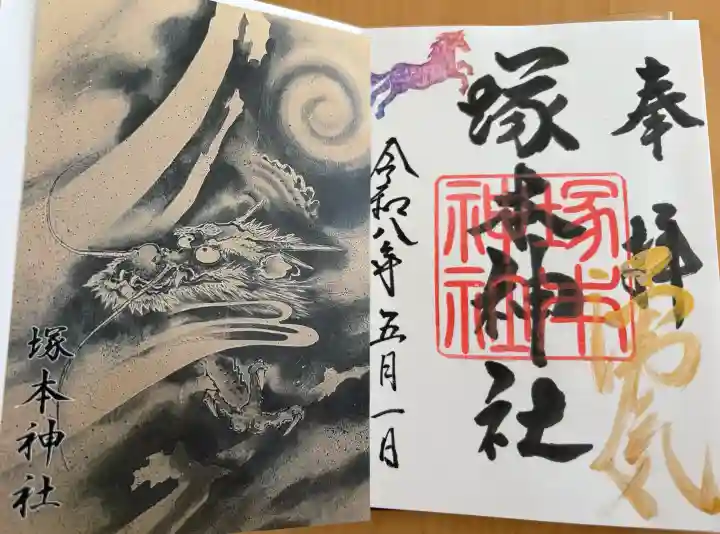 塚本神社
奉拝
塚本神社
塚本神社
令和八年五月一日